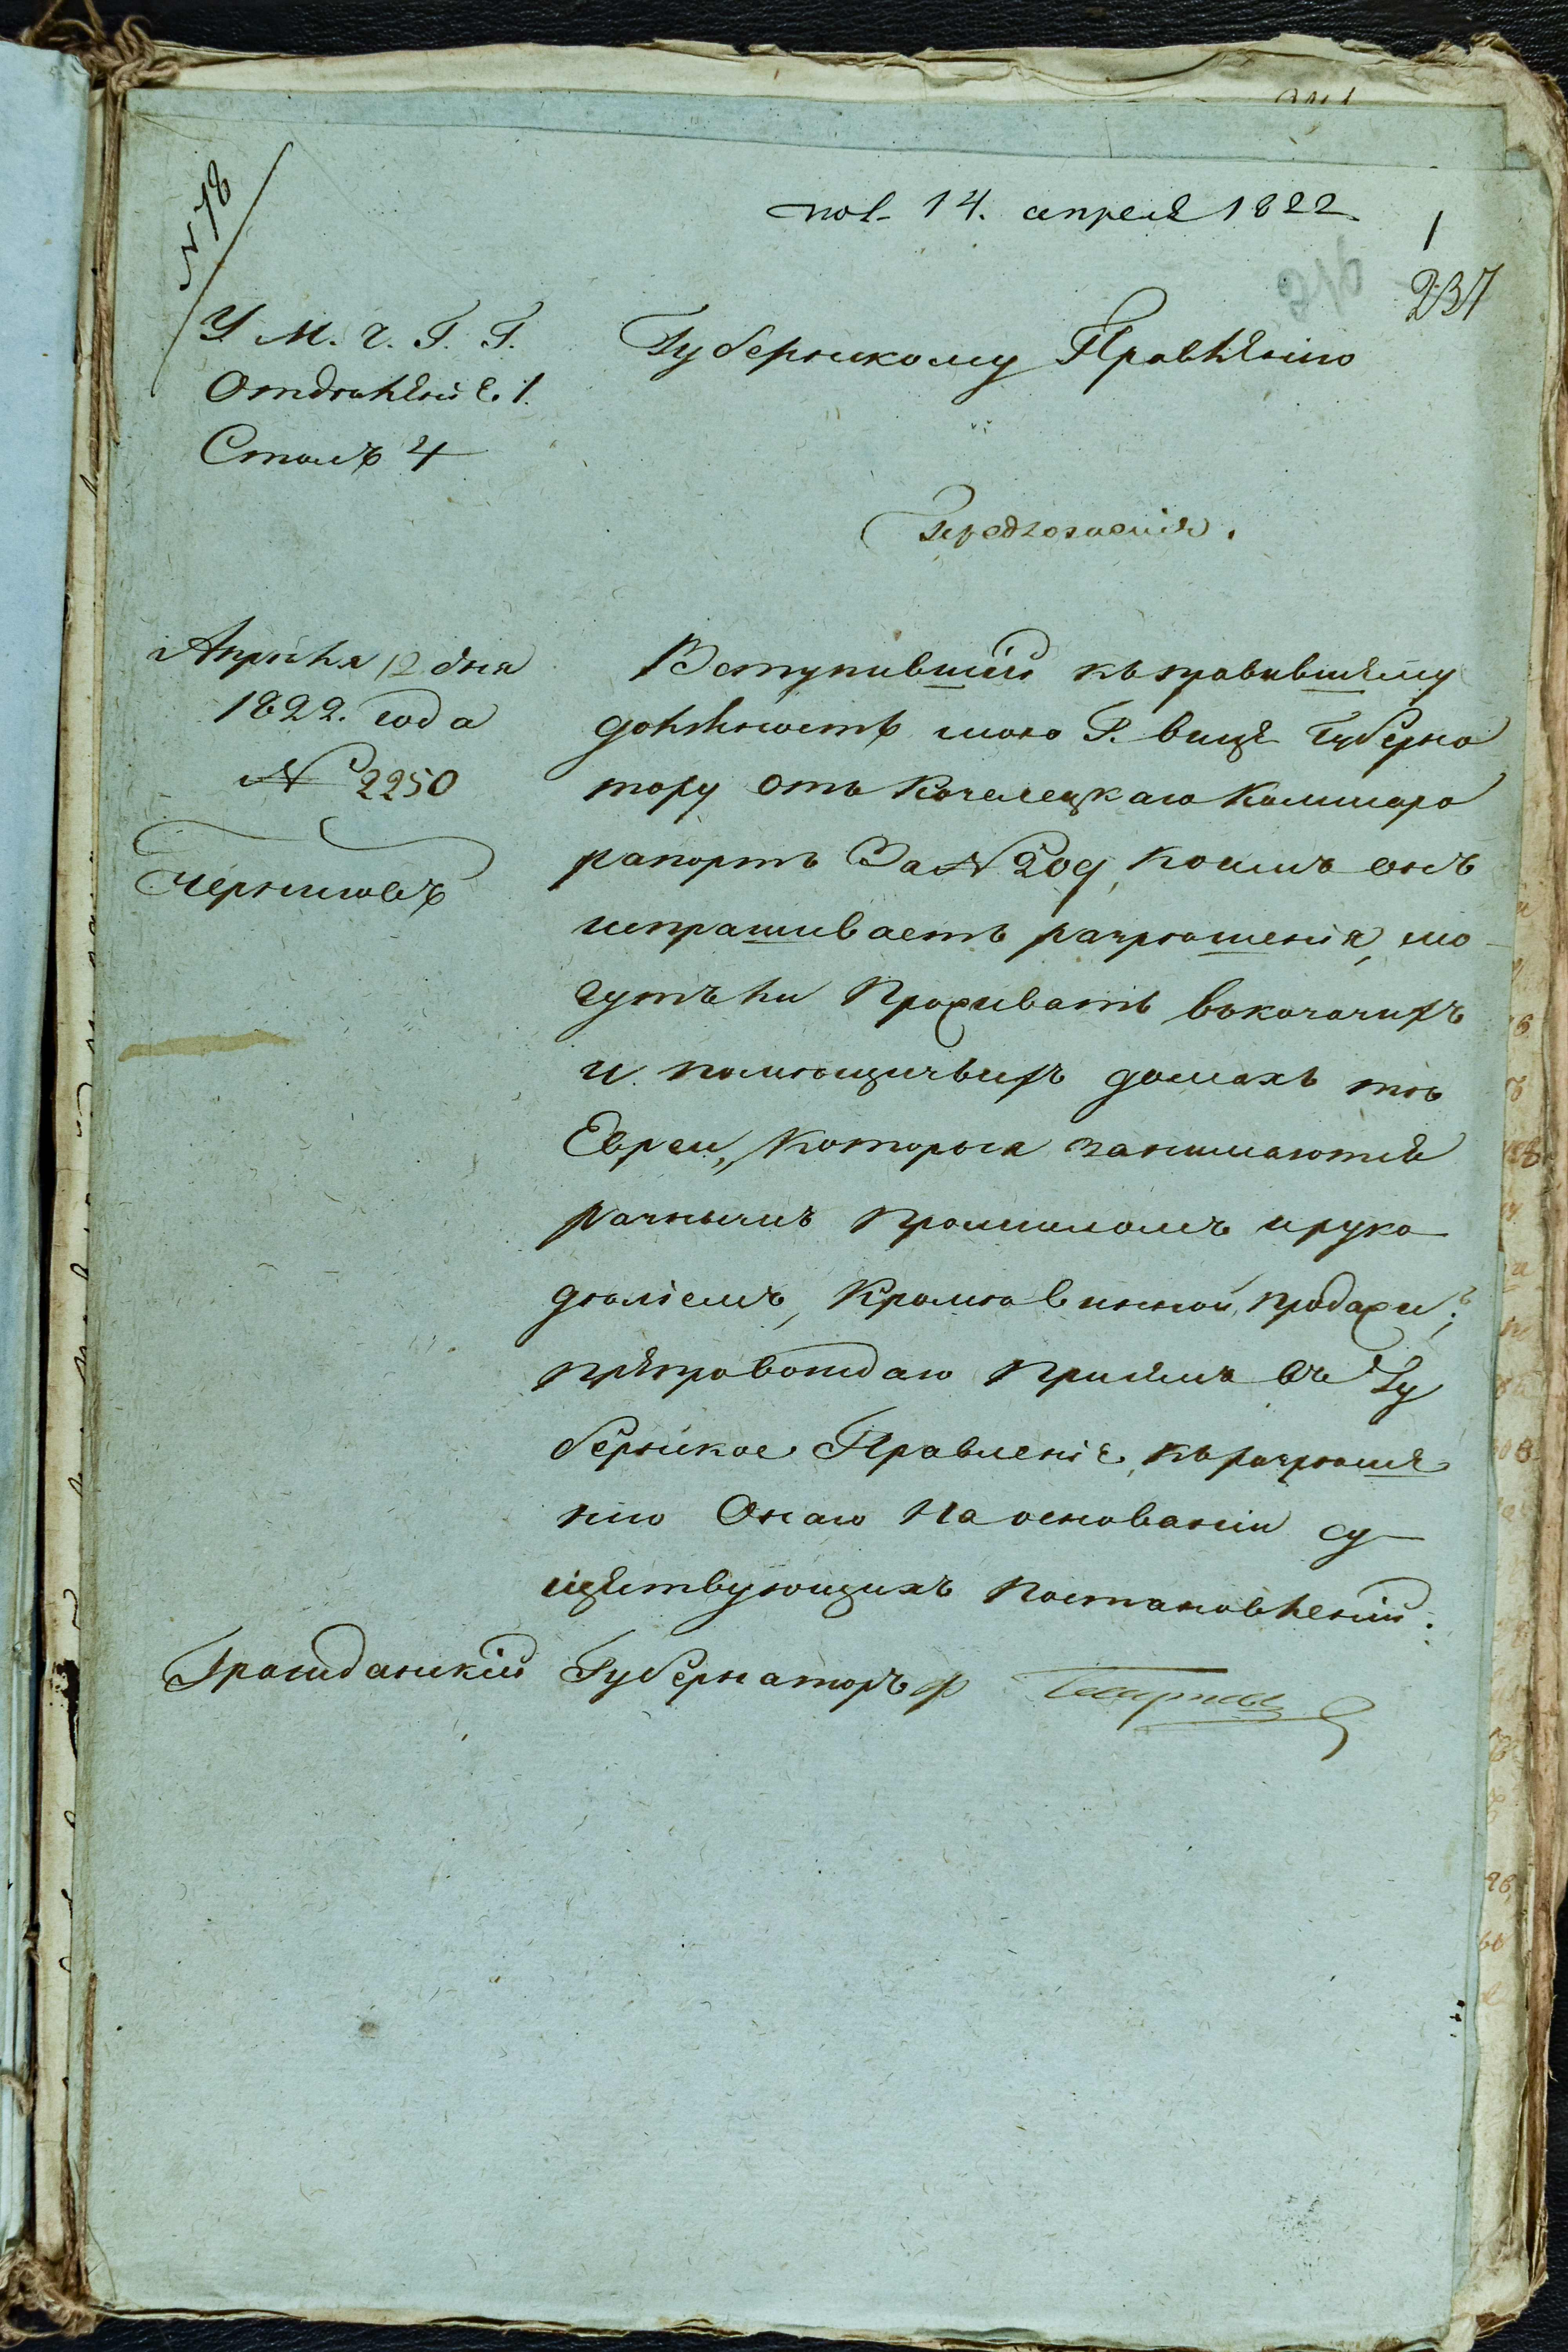 № 78
пол. 14. апреля 1822
1
237
У. М. Ч. Г. Г.
Отделѣніе. 1.
Столъ 4
Губернскому Правленію
Предложеніе.
Апрѣля 12 дня
1822. года
№ 2250
Черниговъ
Вступившій къ правившему
должность мою Г. вице Губерна
тору отъ Козелецкаго Комисара
рапортъ За № 209, коимъ онъ
испрашиваетъ разрѣшенія, мо-
гутъ ли Проживать въ козачихъ
и помѣщичьихъ домахъ тѣ
Евреи, Которыя занимаются
разнымъ Промысломъ и руко
дѣліемъ, Кромѣ винной продажи;
препровождаю При семъ въ Гу
бернское Правленіе, къ разрѣше
нію Онаго На основаніи су
ществующихъ Постановленій.
Гражданскій Губернаторъ